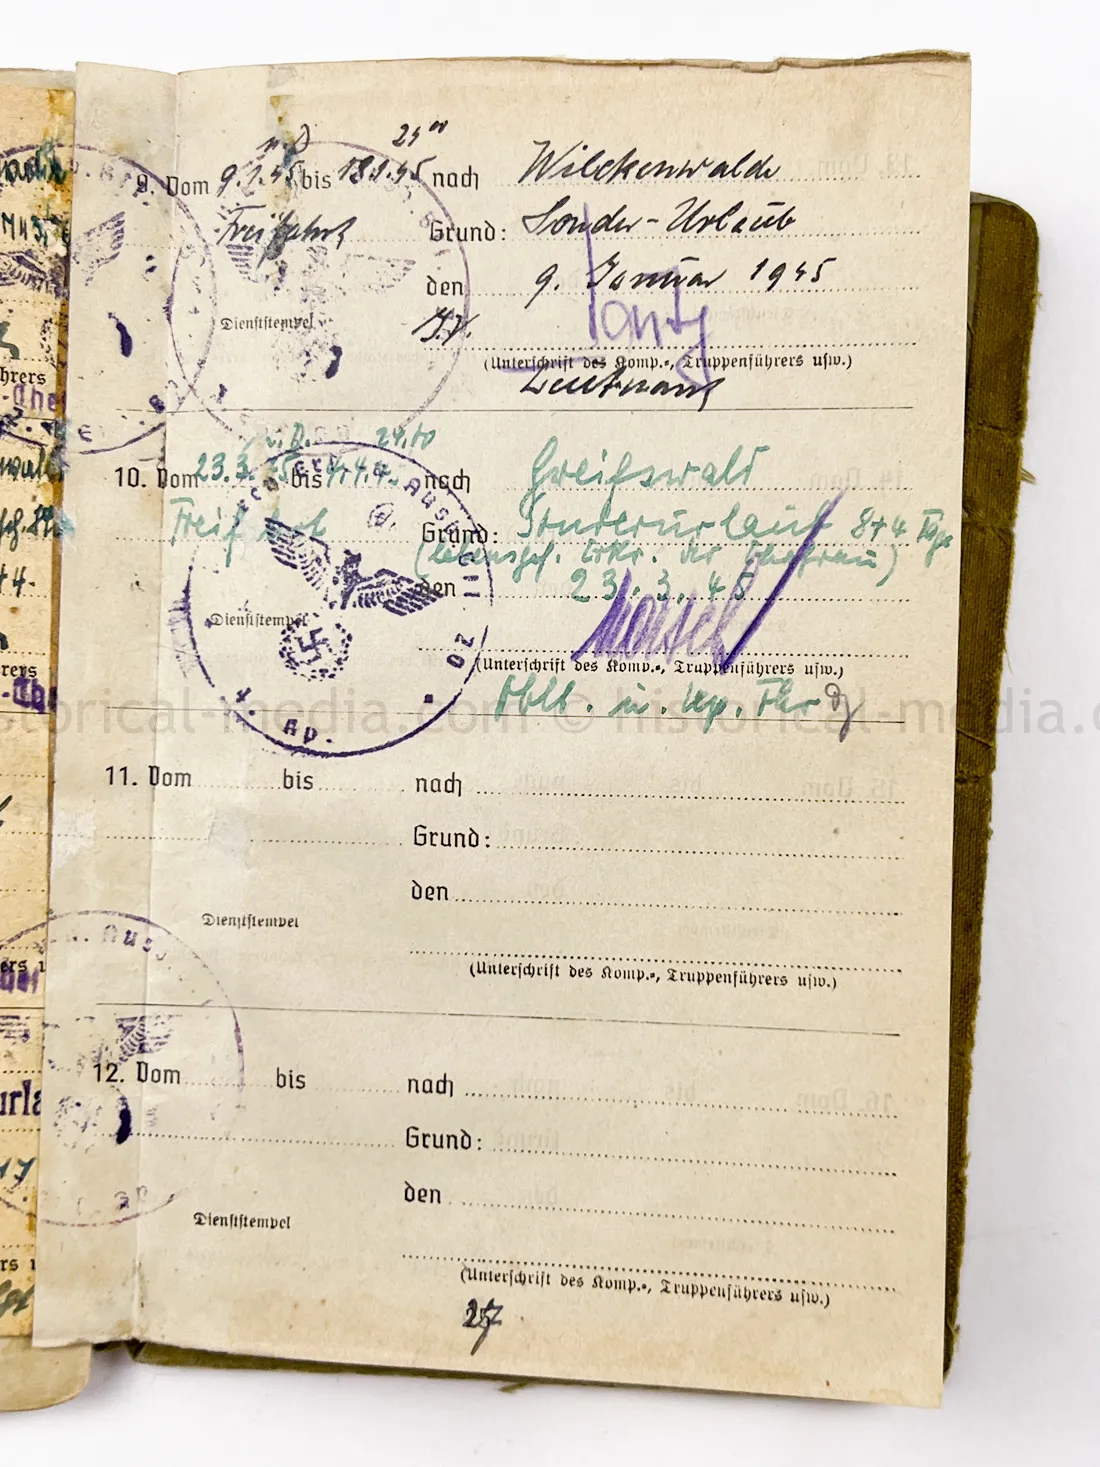 24⁰⁰
9. Vom 9.1.45 bis 18.1.45 nach Wilckenwalde
Freifahrt Grund: Sonder-Urlaub
den 9. Januar 1945
Dienststempel I.V.
(Unterschrift des Komp.-, Truppenführers usw.)
Leutnant
24.00
10. Vom 23.3.45 bis 4.4.45 nach Greifswald
Grund: Sonderurlaub 8+4 Tage
(lebensgef. Erkr. der Ehefrau)
den 23.3.45
Dienststempel
(Unterschrift des Komp.-, Truppenführers usw.)
Oblt. u.
historical-media.com © historical-media.com
11. Vom bis nach
Grund:
den
Dienststempel
(Unterschrift des Komp.-, Truppenführers usw.)
12. Vom bis nach
Grund:
den
Dienststempel
(Unterschrift des Komp.-, Truppenführers usw.)